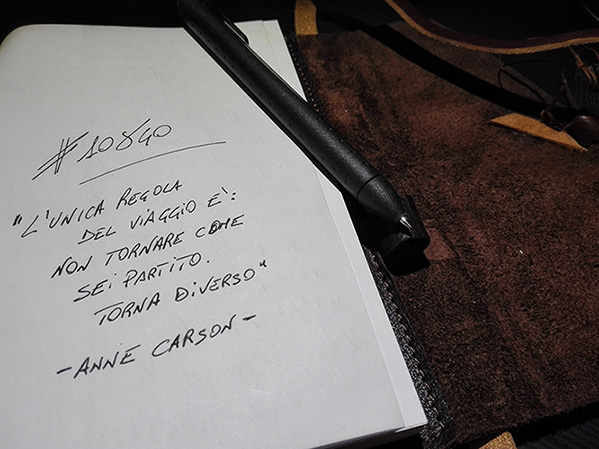 #10840
"L'UNICA REGOLA
DEL VIAGGIO È:
NON TORNARE COME
SEI PARTITO.
TORNA DIVERSO"
-ANNE CARSON-